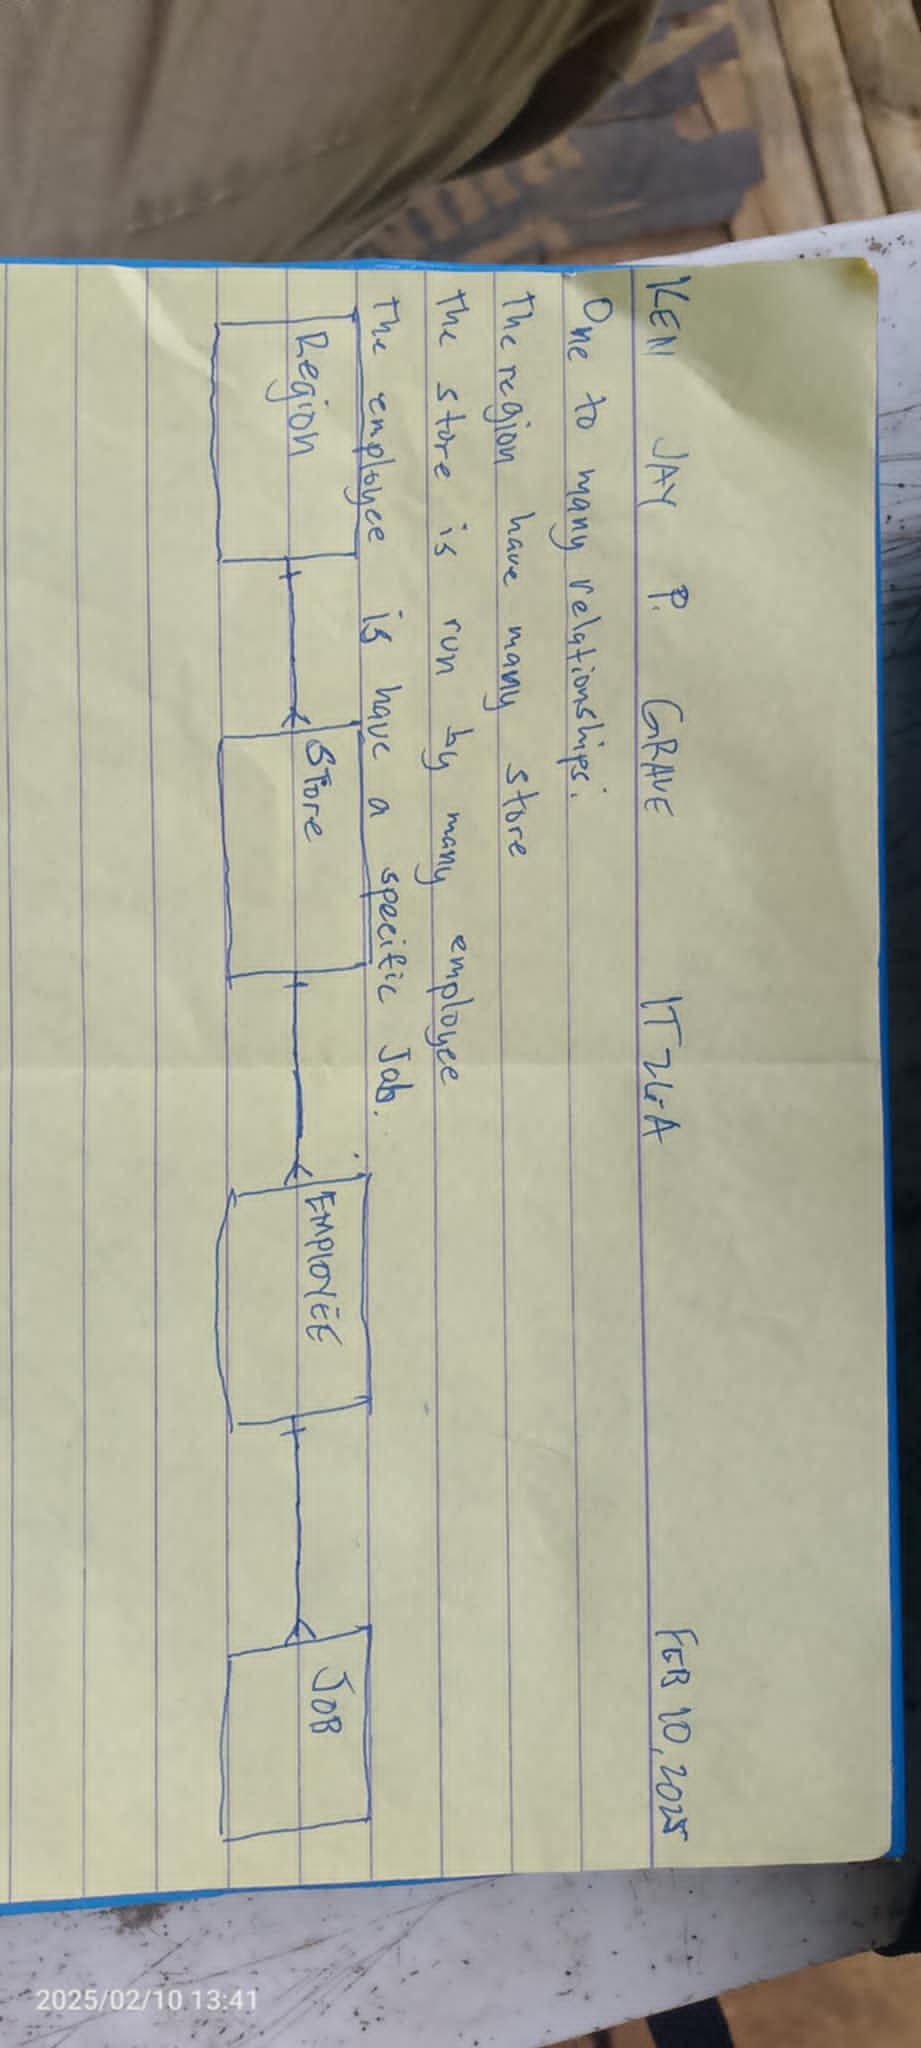 KEN JAY P. GRAVE IT24-A FEB 10, 2025
One to many relationships:
The region have many store
The store is run by many employee
The employee is have a specific Job.
Region Store EMPLOYEE JOB
2025/02/10 13:41